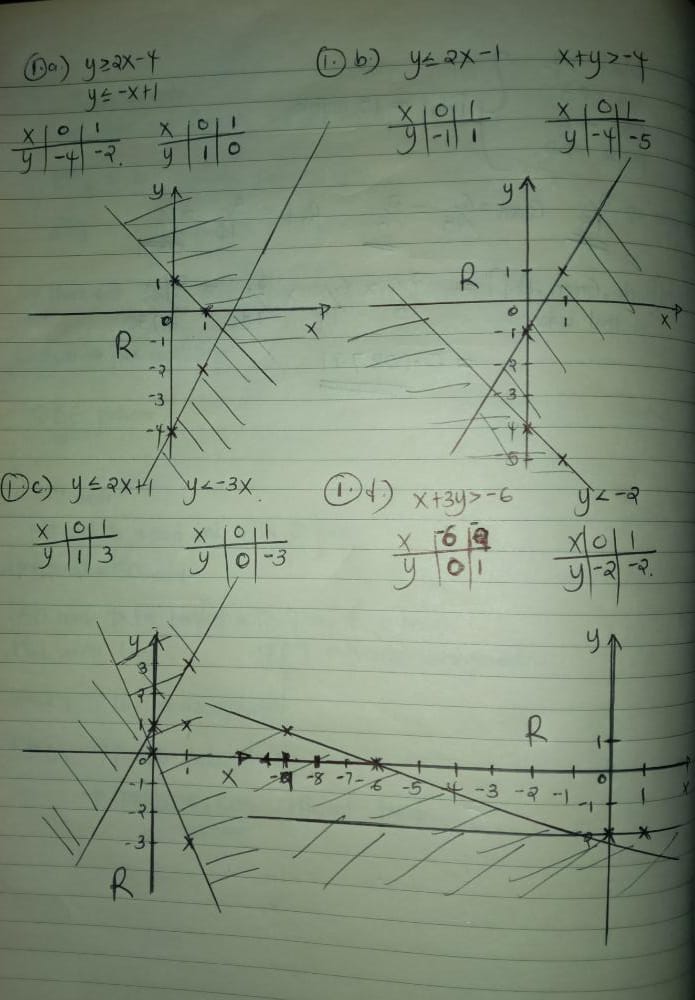 1.a) y≥2x-4
y≤-x+1
x | 0 | 1
y | -4 | -2.
x | 0 | 1
y | 1 | 0
y
1
0
1
x
-1
R
-2
-3
-4
1. b) y≤2x-1 x+y>-4
x | 0 | 1
y | -1 | 1
x | 0 | 1
y | -4 | -5
y
R
1
0
1
x
-1
-2
-3
-4
-5
1 c) y≤2x+1 y<-3x
x | 0 | 1
y | 1 | 3
x | 0 | 1
y | 0 | -3
y
3
2
1
0
1
x
-1
-2
-3
R
1. d) x+3y>-6 y<-2
x | -6
y | 0 | 1
x | 0 | 1
y | -2 | -2.
y
R
1
-9 -8 -7 -6 -5 -4 -3 -2 -1 0 1 x
-1